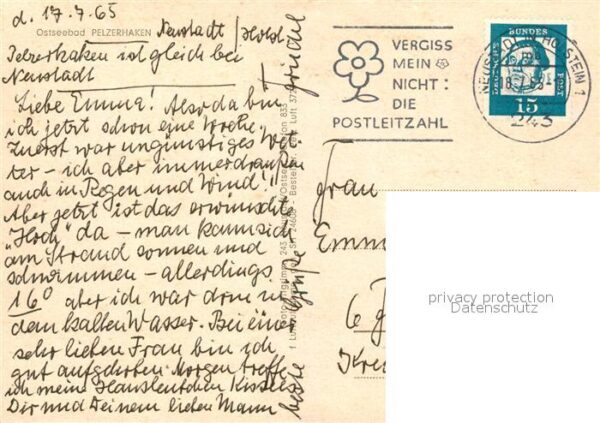 d. 17.7.65
Ostseebad PELZERHAKEN
Neustadt / Holst
Pelzerhaken ist gleich bei
Neustadt
Liebe Emma! Also da bin
ich jetzt schon eine Woche,
zuerst war ungünstiges Wet-
ter – ich aber immer draußen
auch in Regen und Wind!
Aber jetzt ist das erwünscht
"Hoch" da – man kann sich
am Strand sonnen und
schwimmen – allerdings
16° aber ich war drin in
dem kalten Wasser. Bei einer
sehr lieben Frau bin ich
gut aufgehoben. Morgen treffe
ich meine
Dir und Deinem lieben Mann
beste Grüße
VERGISS
MEIN
NICHT:
DIE
POSTLEITZAHL
DEUTSCHE BUNDESPOST
15
NEUSTADT IN HOLSTEIN 1
243
Frau
Emm
6
privacy protection
Datenschutz